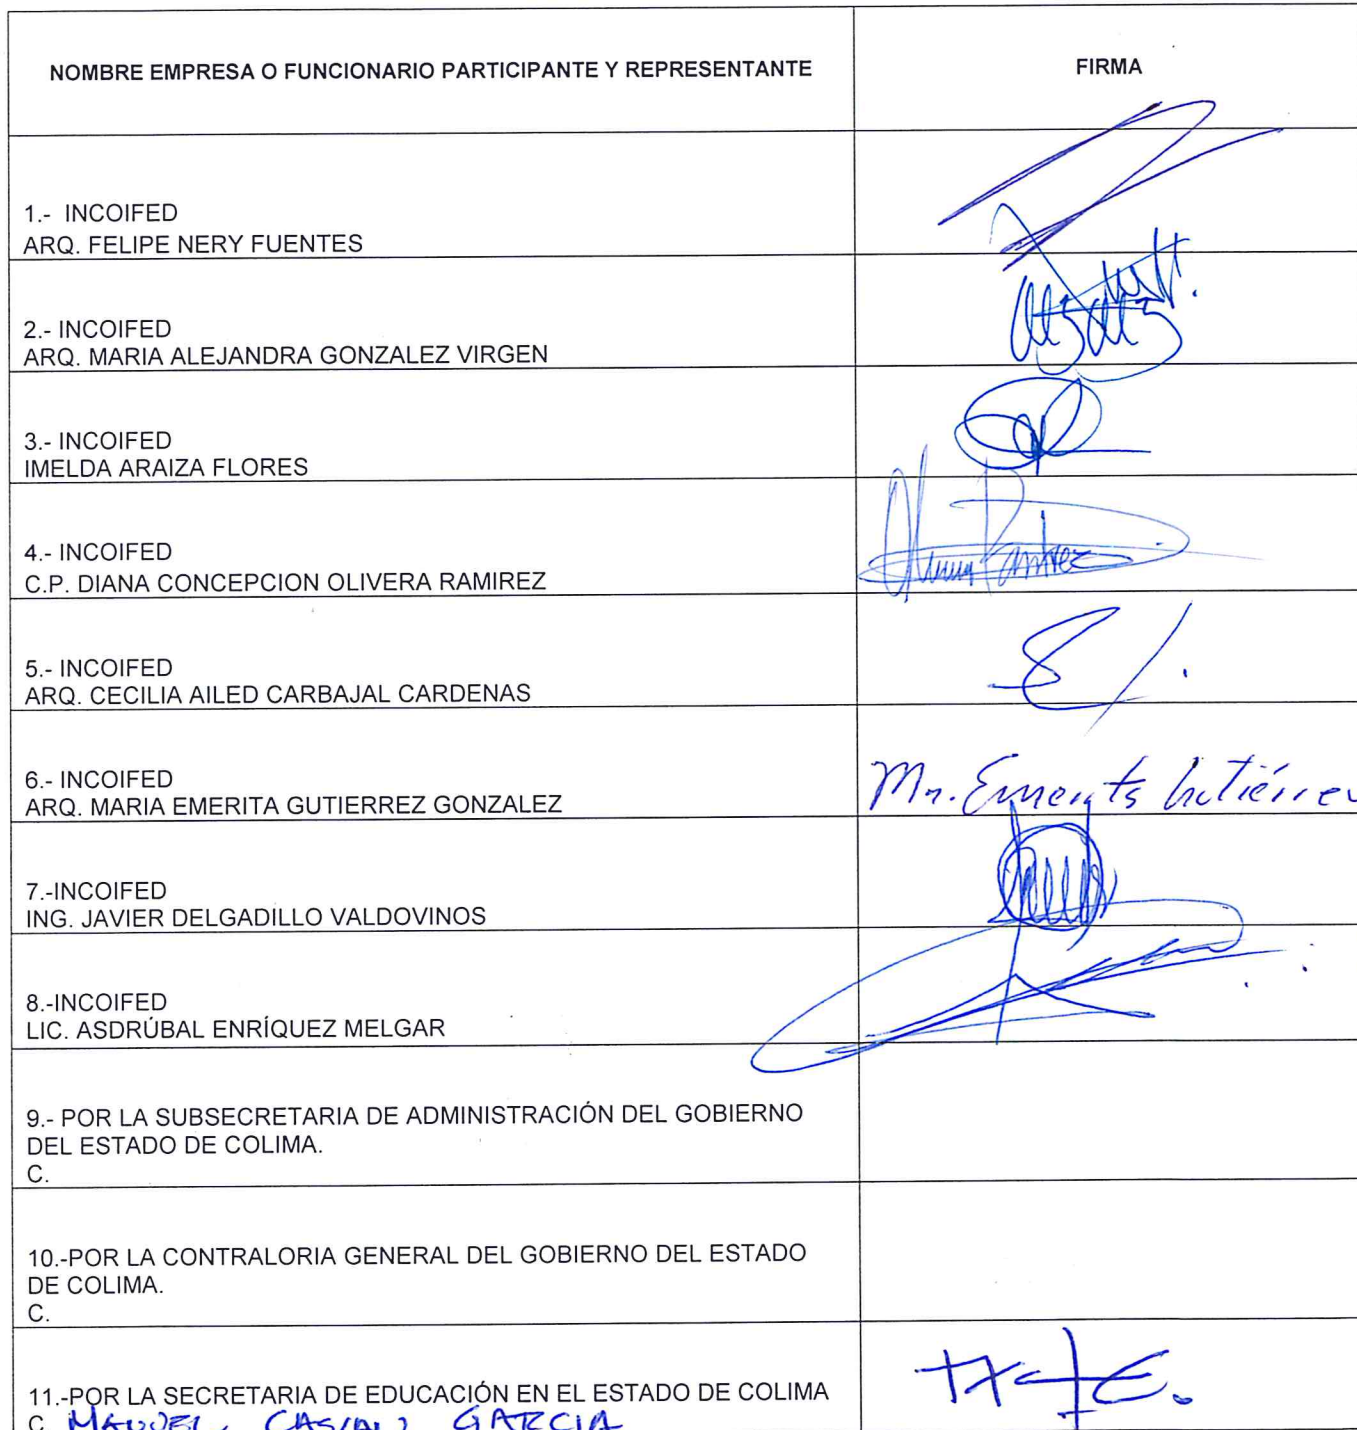 NOMBRE EMPRESA O FUNCIONARIO PARTICIPANTE Y REPRESENTANTE
FIRMA
1.- INCOIFED
ARQ. FELIPE NERY FUENTES
2.- INCOIFED
ARQ. MARIA ALEJANDRA GONZALEZ VIRGEN
3.- INCOIFED
IMELDA ARAIZA FLORES
4.- INCOIFED
C.P. DIANA CONCEPCION OLIVERA RAMIREZ
Ramirez
5.- INCOIFED
ARQ. CECILIA AILED CARBAJAL CARDENAS
6.- INCOIFED
ARQ. MARIA EMERITA GUTIERREZ GONZALEZ
Ma. Emerita Gutiérrez
7.-INCOIFED
ING. JAVIER DELGADILLO VALDOVINOS
8.-INCOIFED
LIC. ASDRÚBAL ENRÍQUEZ MELGAR
9.- POR LA SUBSECRETARIA DE ADMINISTRACIÓN DEL GOBIERNO
DEL ESTADO DE COLIMA.
C.
10.-POR LA CONTRALORIA GENERAL DEL GOBIERNO DEL ESTADO
DE COLIMA.
C.
11.-POR LA SECRETARIA DE EDUCACIÓN EN EL ESTADO DE COLIMA
C. MANUEL GARCIA